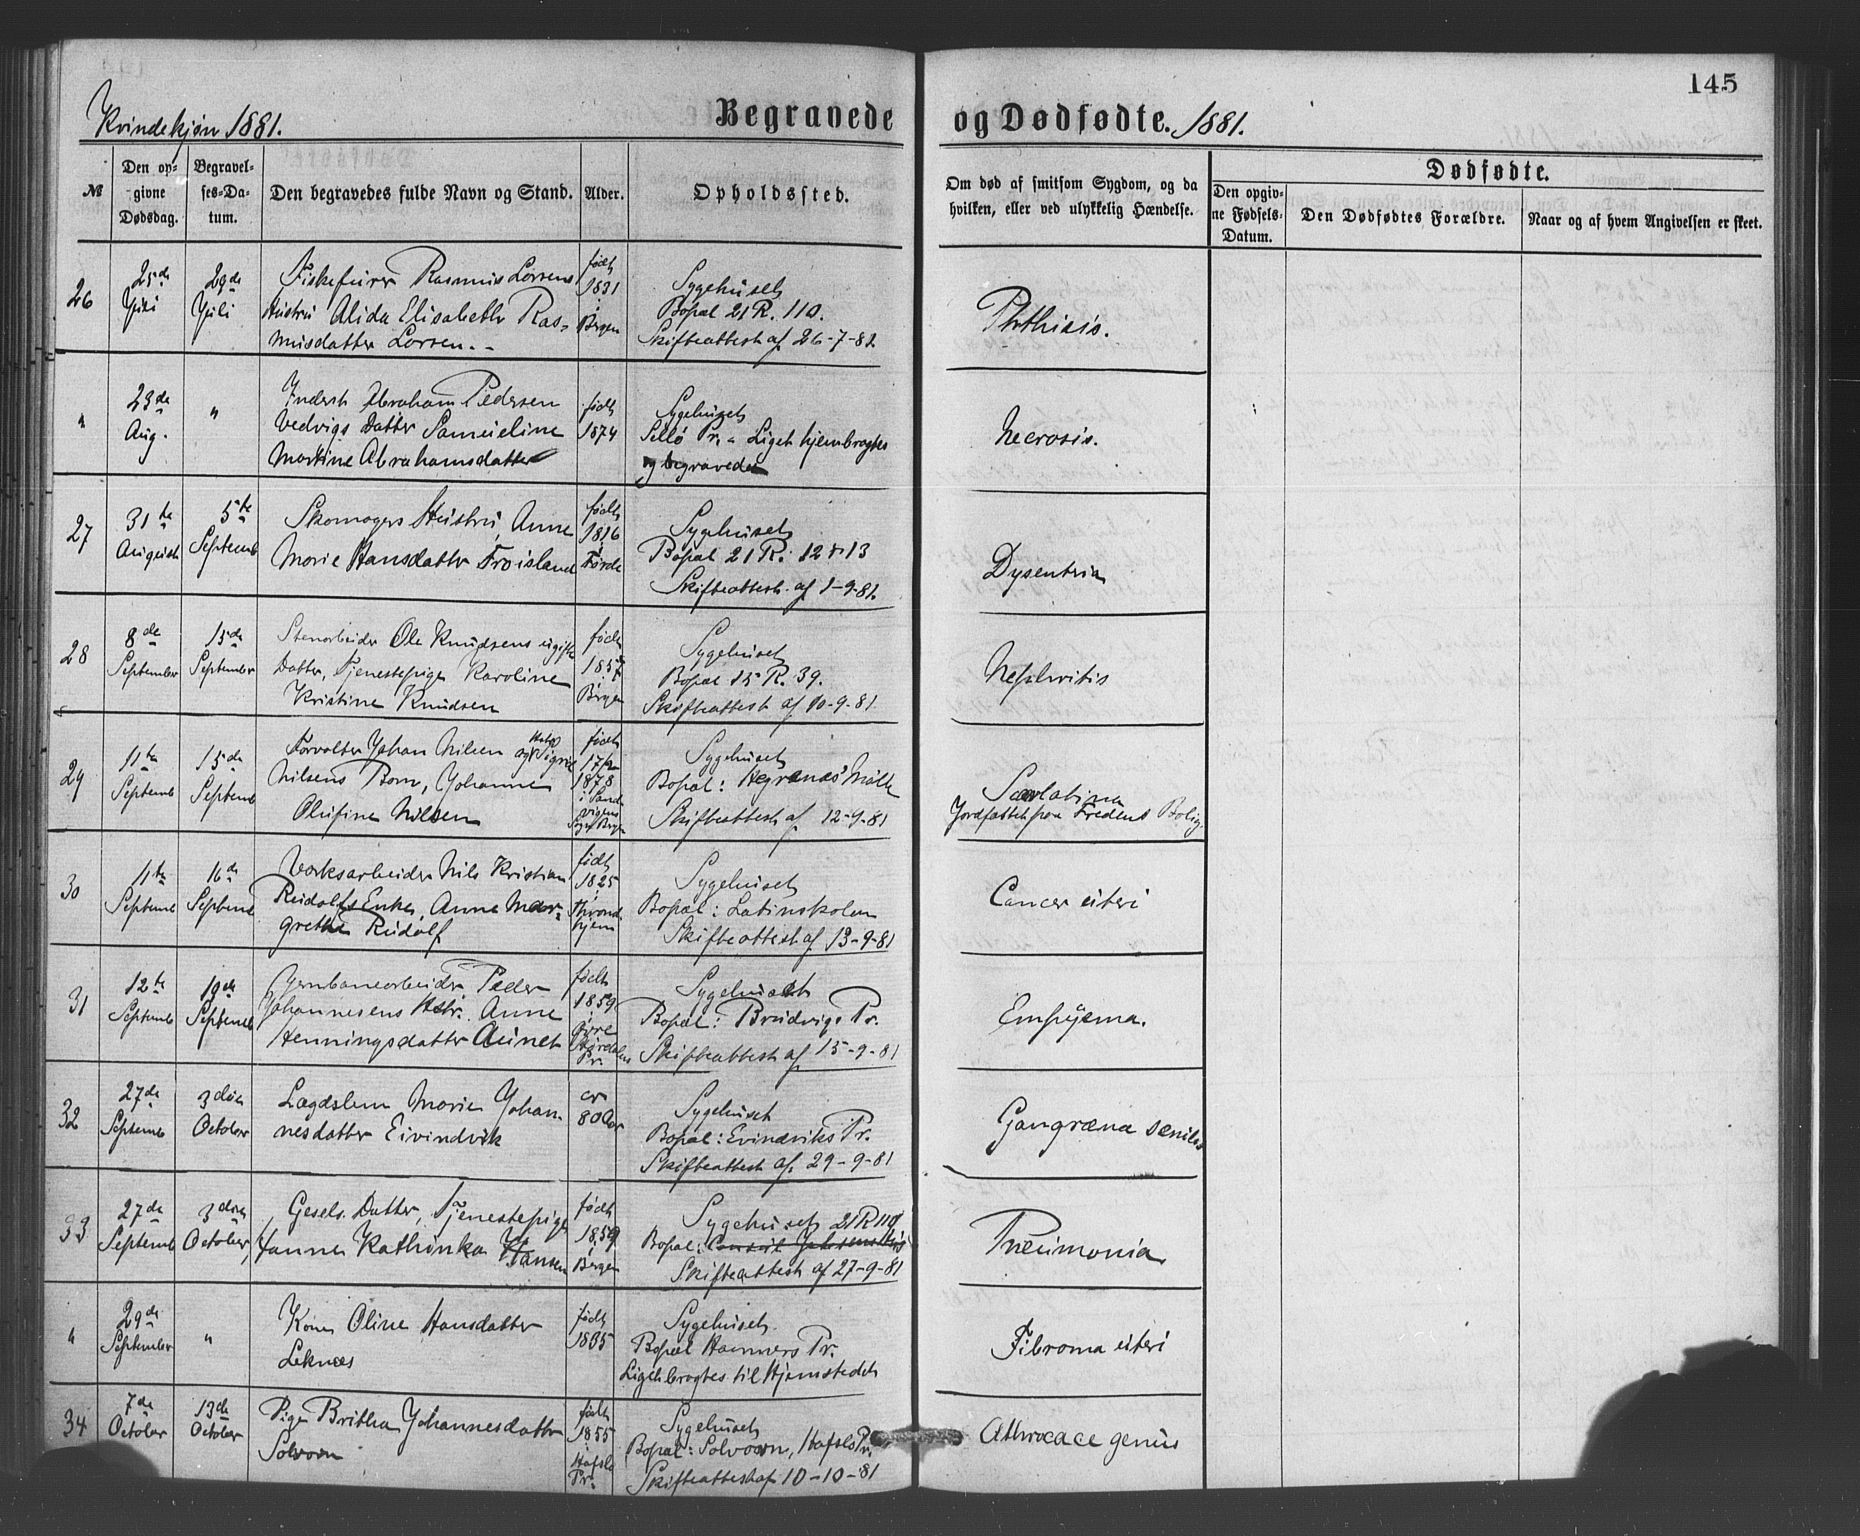 145
Kvindekjøn 1881.
Begravede og Dødfødte. 1881.
№
Den opgivne Dødsdag.
Begravelses-Datum.
Den begravedes fulde Navn og Stand.
Alder.
Opholdssted.
Om død af smitsom Sygdom, og da hvilken, eller ved ulykkelig Hændelse.
Dødfødte.
Den opgivne Fødsels-Datum.
Den Dødfødtes Forældre.
Naar og af hvem Angivelsen er skeet.
26
25de Juli
29de Juli
Fiskefører Rasmus Larsens
Hustru Alida Elisabeth Ras-
musdatter Larsen.
født 1831 i Bergen
Sygehuset
Bopæl 21 R. 110.
Skifteattest af 26-7-81.
Phthisis.
"
23de Aug.
"
Inderst Abraham Pedersen
Vedvigs Datter Samueline
Martine Abrahamsdatter
født 1874
Sygehuset
Sellø Pr. - Liget hjembragtes
og begravedes
Necrosis.
27
31te August
5te Septemb
Skomagers Hustru, Anne
Marie Hansdatter Frøisland
født 1816 i Førde
Sygehuset
Bopæl 21 R: 12 & 13
Skifteattest af 1-9-81.
Dysenteria
28
8de September
13de September
Stenarbeider Ole Knudsens ugifte
Datter, Tjenestepige Karoline
Kristine Knudsen
født 1857 i Bergen
Sygehuset
Bopæl 15 R. 39.
Skifteattest af 10-9-81
Nephritis
29
11te Septemb
15de Septemb
Forvalter Johan Nilsen og Sigrid
Nilsens Barn, Johanne
Olufine Nilsen
født 17/2 1878 i Sandvigens Sogn Bergen
Sygehuset
Bopæl: Hegrenæs Mølle
Skifteattest af 12-9-81
Scarlatina
Jordfæstet fra Fredens Bolig.
30
11te Septemb
16de Septemb
Værksarbeider Nils Kristian
Rudolfs Enke, Anne Mar-
grethe Rudolf
født 1825 i Throndhjem
Sygehuset
Bopæl: Latinskolen
Skifteattest af 13-9-81
Cancer uteri
31
12te Septemb
19de Septemb
Jernbanearbeider Peder
Johannesens Hstr. Anne
Henningsdatter Aunet
født 1859 i Øvre Størdalens Pr.
Sygehuset
Bopæl: Brudvigs Pr.
Skifteattest af 15-9-81
Empyema.
32
27de Septemb
3die October
Lægdslem Marie Johan-
nesdatter Eivindvik
cr 80 Aar
Sygehuset
Bopæl: Evindviks Pr.
Skifteattest af. 29-9-81
Gangræna senilis
33
27de Septemb
3die October
Gesels. Datter, Tjenestepige
Janna Kathinka Hansen
født 1859 i Bergen
Sygehuset 21 R 110
Bopæl:
Skifteattest af 27-9-81
Pneumonia
"
29de September
"
Kone Oline Hansdatter
Leknæs
født 1835
Sygehuset.
Bopæl Hammers Pr.
Liget bragtes til Hjemstedet
Fibroma uteri
34
7de October
13de October
Pige Britha Johannesdatter
Solvorn
født 1855 i Hafslo Pr.
Sygehuset
Bopæl: Solvorn, Hafslo Pr.
Skifteattest af 10-10-81
Athrocace genus